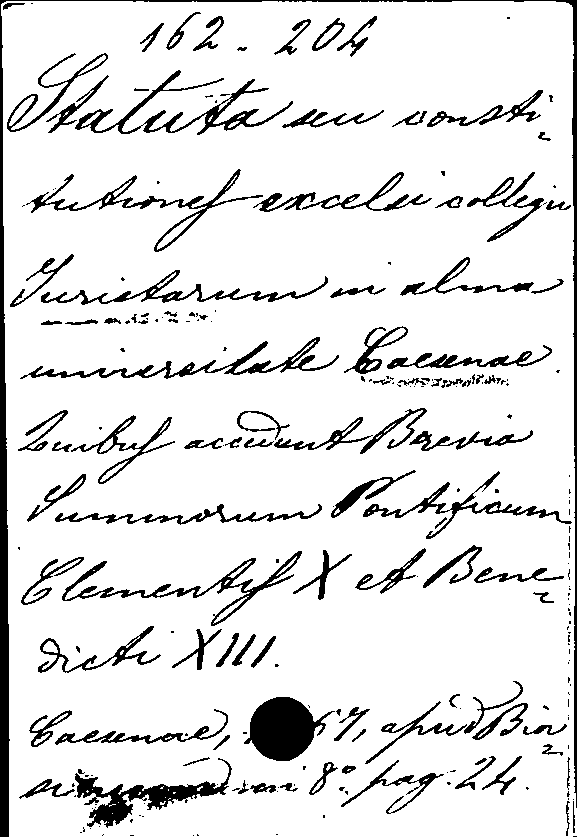 162. 204
Statuta seu consti=
tutiones excelsi collegii
Juristarum in alma
universitate Caesenae.
Quibus accedunt Brevia
Summorum Pontificum
Clementis X et Bene=
dicti XIII.
Caesenae, 67, apud Bia=
in 8° pag. 24.